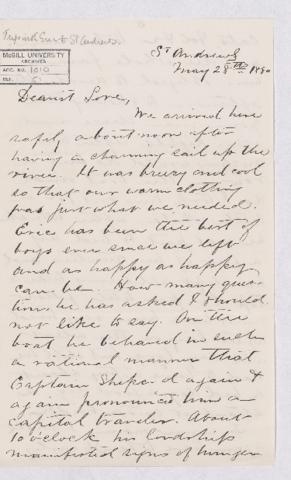 St Andrews
McGILL UNIVERSITY
ARCHIVES
ACC. NO. 1010
REF.
St Andrews
May 28th 1890
Dearest Love,
We arrived here
safely about noon after
having a charming sail up the
river. It was breezy and cool
so that our warm clothing
was just what we needed.
Eric has been the best of
boys ever since we left
and as happy as happy
can be. How many ques-
tions he has asked I should
not like to say. On the
boat he behaved in such
a rational manner that
Captain Sheperd again &
again pronounced him a
capital traveler. About
10 o'clock his lordship
manifested signs of hunger